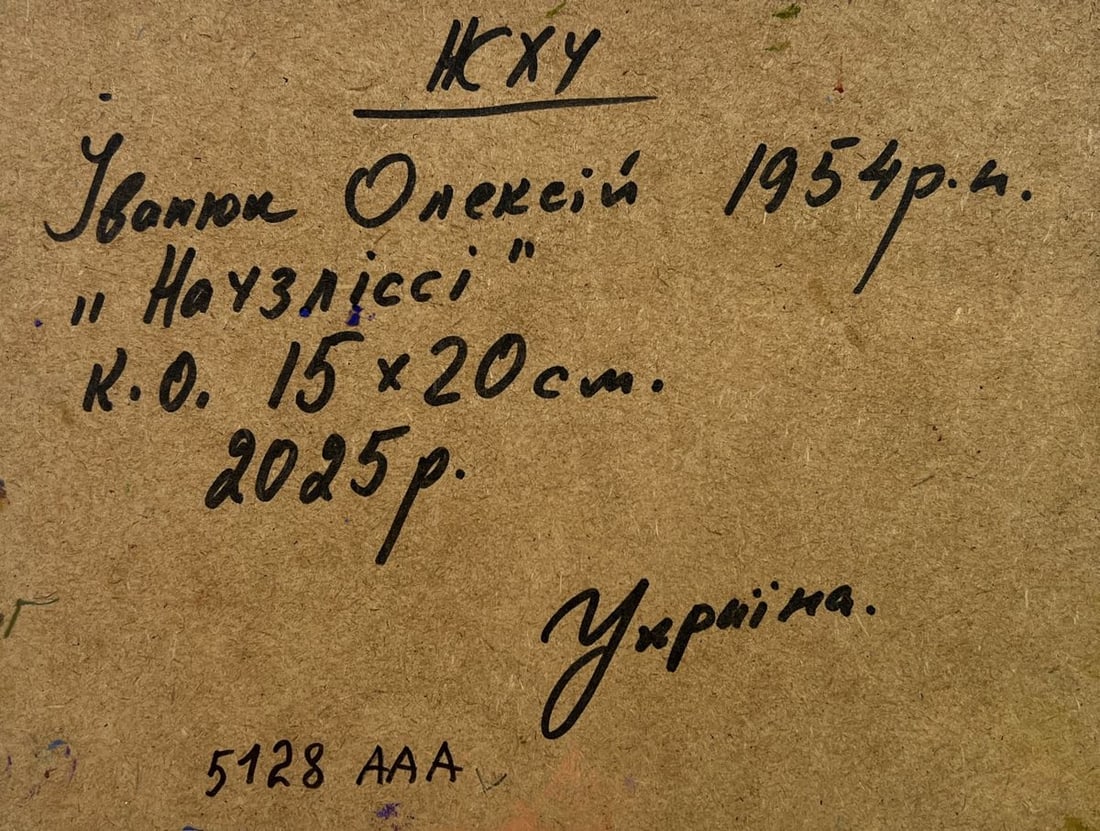 ЖХУ
Іванюк Олексій 1954р.н.
"На узліссі"
к.о. 15х20см.
2025р.
Україна.
5128 ААА